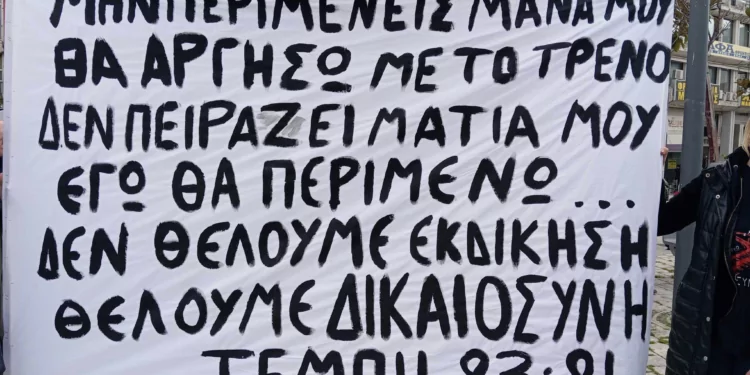 ΜΗΝ ΠΕΡΙΜΕΝΕΙΣ ΜΑΝΑ ΜΟΥ
ΘΑ ΑΡΓΗΣΩ ΜΕ ΤΟ ΤΡΕΝΟ
ΔΕΝ ΠΕΙΡΑΖΕΙ ΜΑΤΙΑ ΜΟΥ
ΕΓΩ ΘΑ ΠΕΡΙΜΕΝΩ ...
ΔΕΝ ΘΕΛΟΥΜΕ ΕΚΔΙΚΗΣΗ
ΘΕΛΟΥΜΕ ΔΙΚΑΙΟΣΥΝΗ
ΤΕΜΠΗ